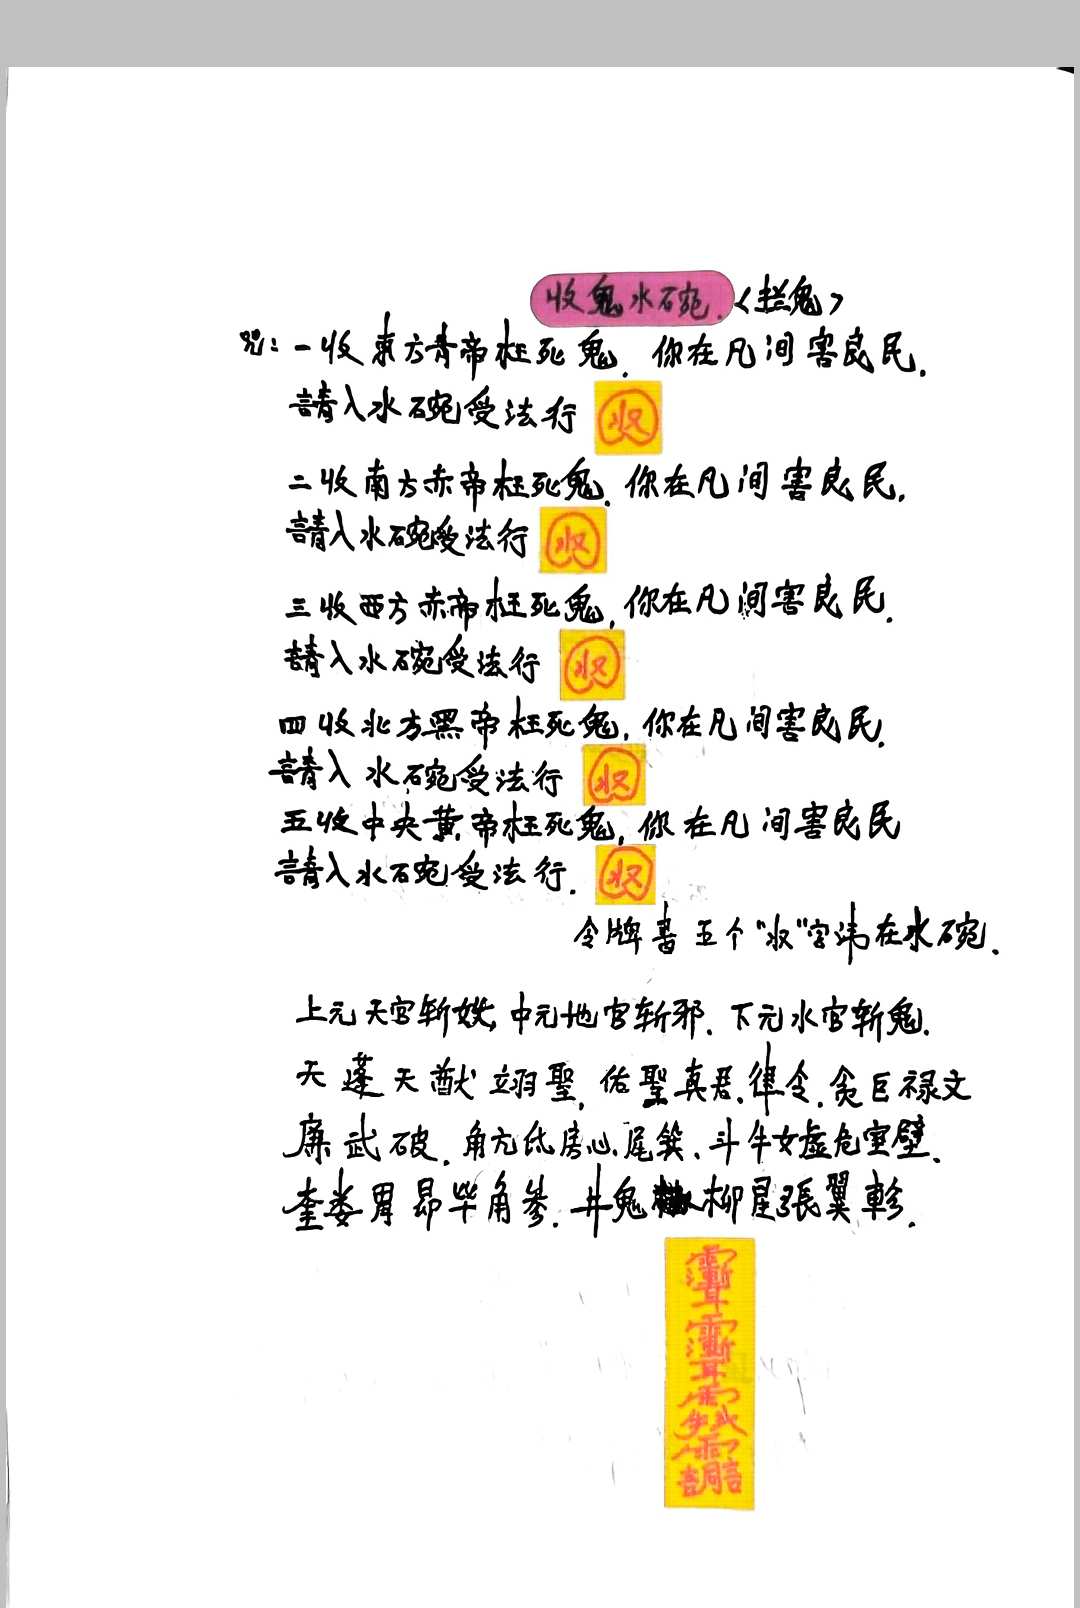 收鬼水碗.〈拦鬼〉
咒：一收東方青帝枉死鬼.你在凡间害良民.
請入水碗受法行 収
二收南方赤帝枉死鬼.你在凡间害良民.
請入水碗受法行 収
三收西方赤帝枉死鬼,你在凡间害良民.
請入水碗受法行 収
四收北方黑帝枉死鬼,你在凡间害良民.
請入水碗受法行 収
五收中央黄帝枉死鬼,你在凡间害良民
請入水碗受法行. 収
令牌書五个"収"字讳在水碗.
上元天官斩妖,中元地官斩邪.下元水官斩鬼.
天蓬天猷翊聖,佑聖真君.律令.贪巨禄文
廉武破.角亢氐房心尾箕、斗牛女虚危室壁.
奎娄胃昴毕角参.井鬼柳星張翼軫.